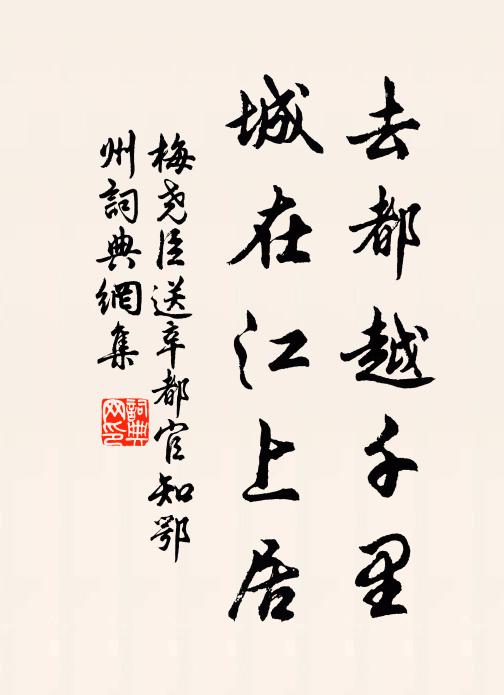 去都越千里
城在江上居
梅尧臣送辛都官知鄂
州詞典網集
詞典网印